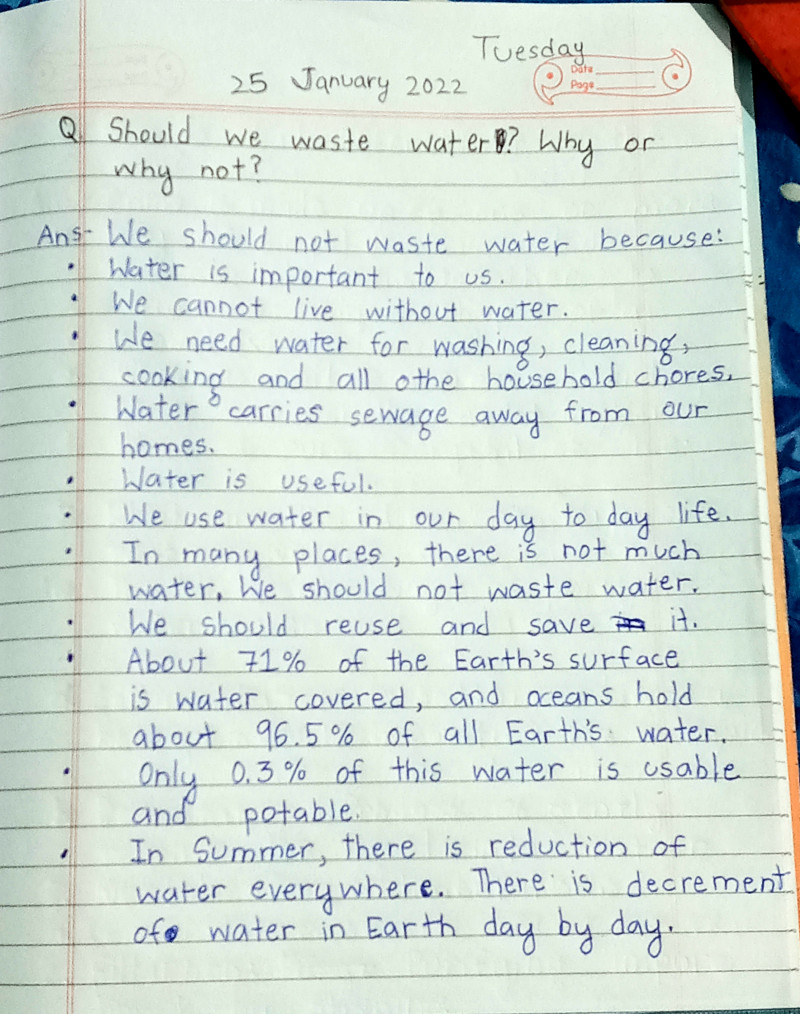 Tuesday
25 January 2022
Date
Page
Q. Should we waste water? Why or
why not?
Ans- We should not waste water because:
• Water is important to us.
• We cannot live without water.
• We need water for washing, cleaning,
cooking and all othe household chores.
• Water carries sewage away from our
homes.
• Water is useful.
• We use water in our day to day life.
• In many places, there is not much
water. We should not waste water.
• We should reuse and save it.
• About 71% of the Earth's surface
is water covered, and oceans hold
about 96.5% of all Earth's water.
• Only 0.3% of this water is usable
and potable.
• In Summer, there is reduction of
water everywhere. There is decrement
of water in Earth day by day.